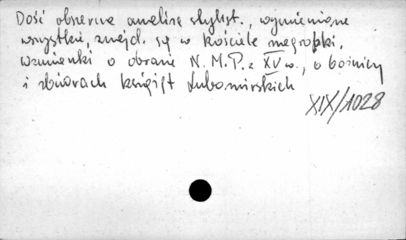 Dość obszerna analiza stylist., wymienione
wszystkie, znajd. się w kościele nagrobki,
wzmianki o obrazie N.M.P. z XV w., o bożnicy
i zbiorach książąt Lubomirskich
XIX/1028